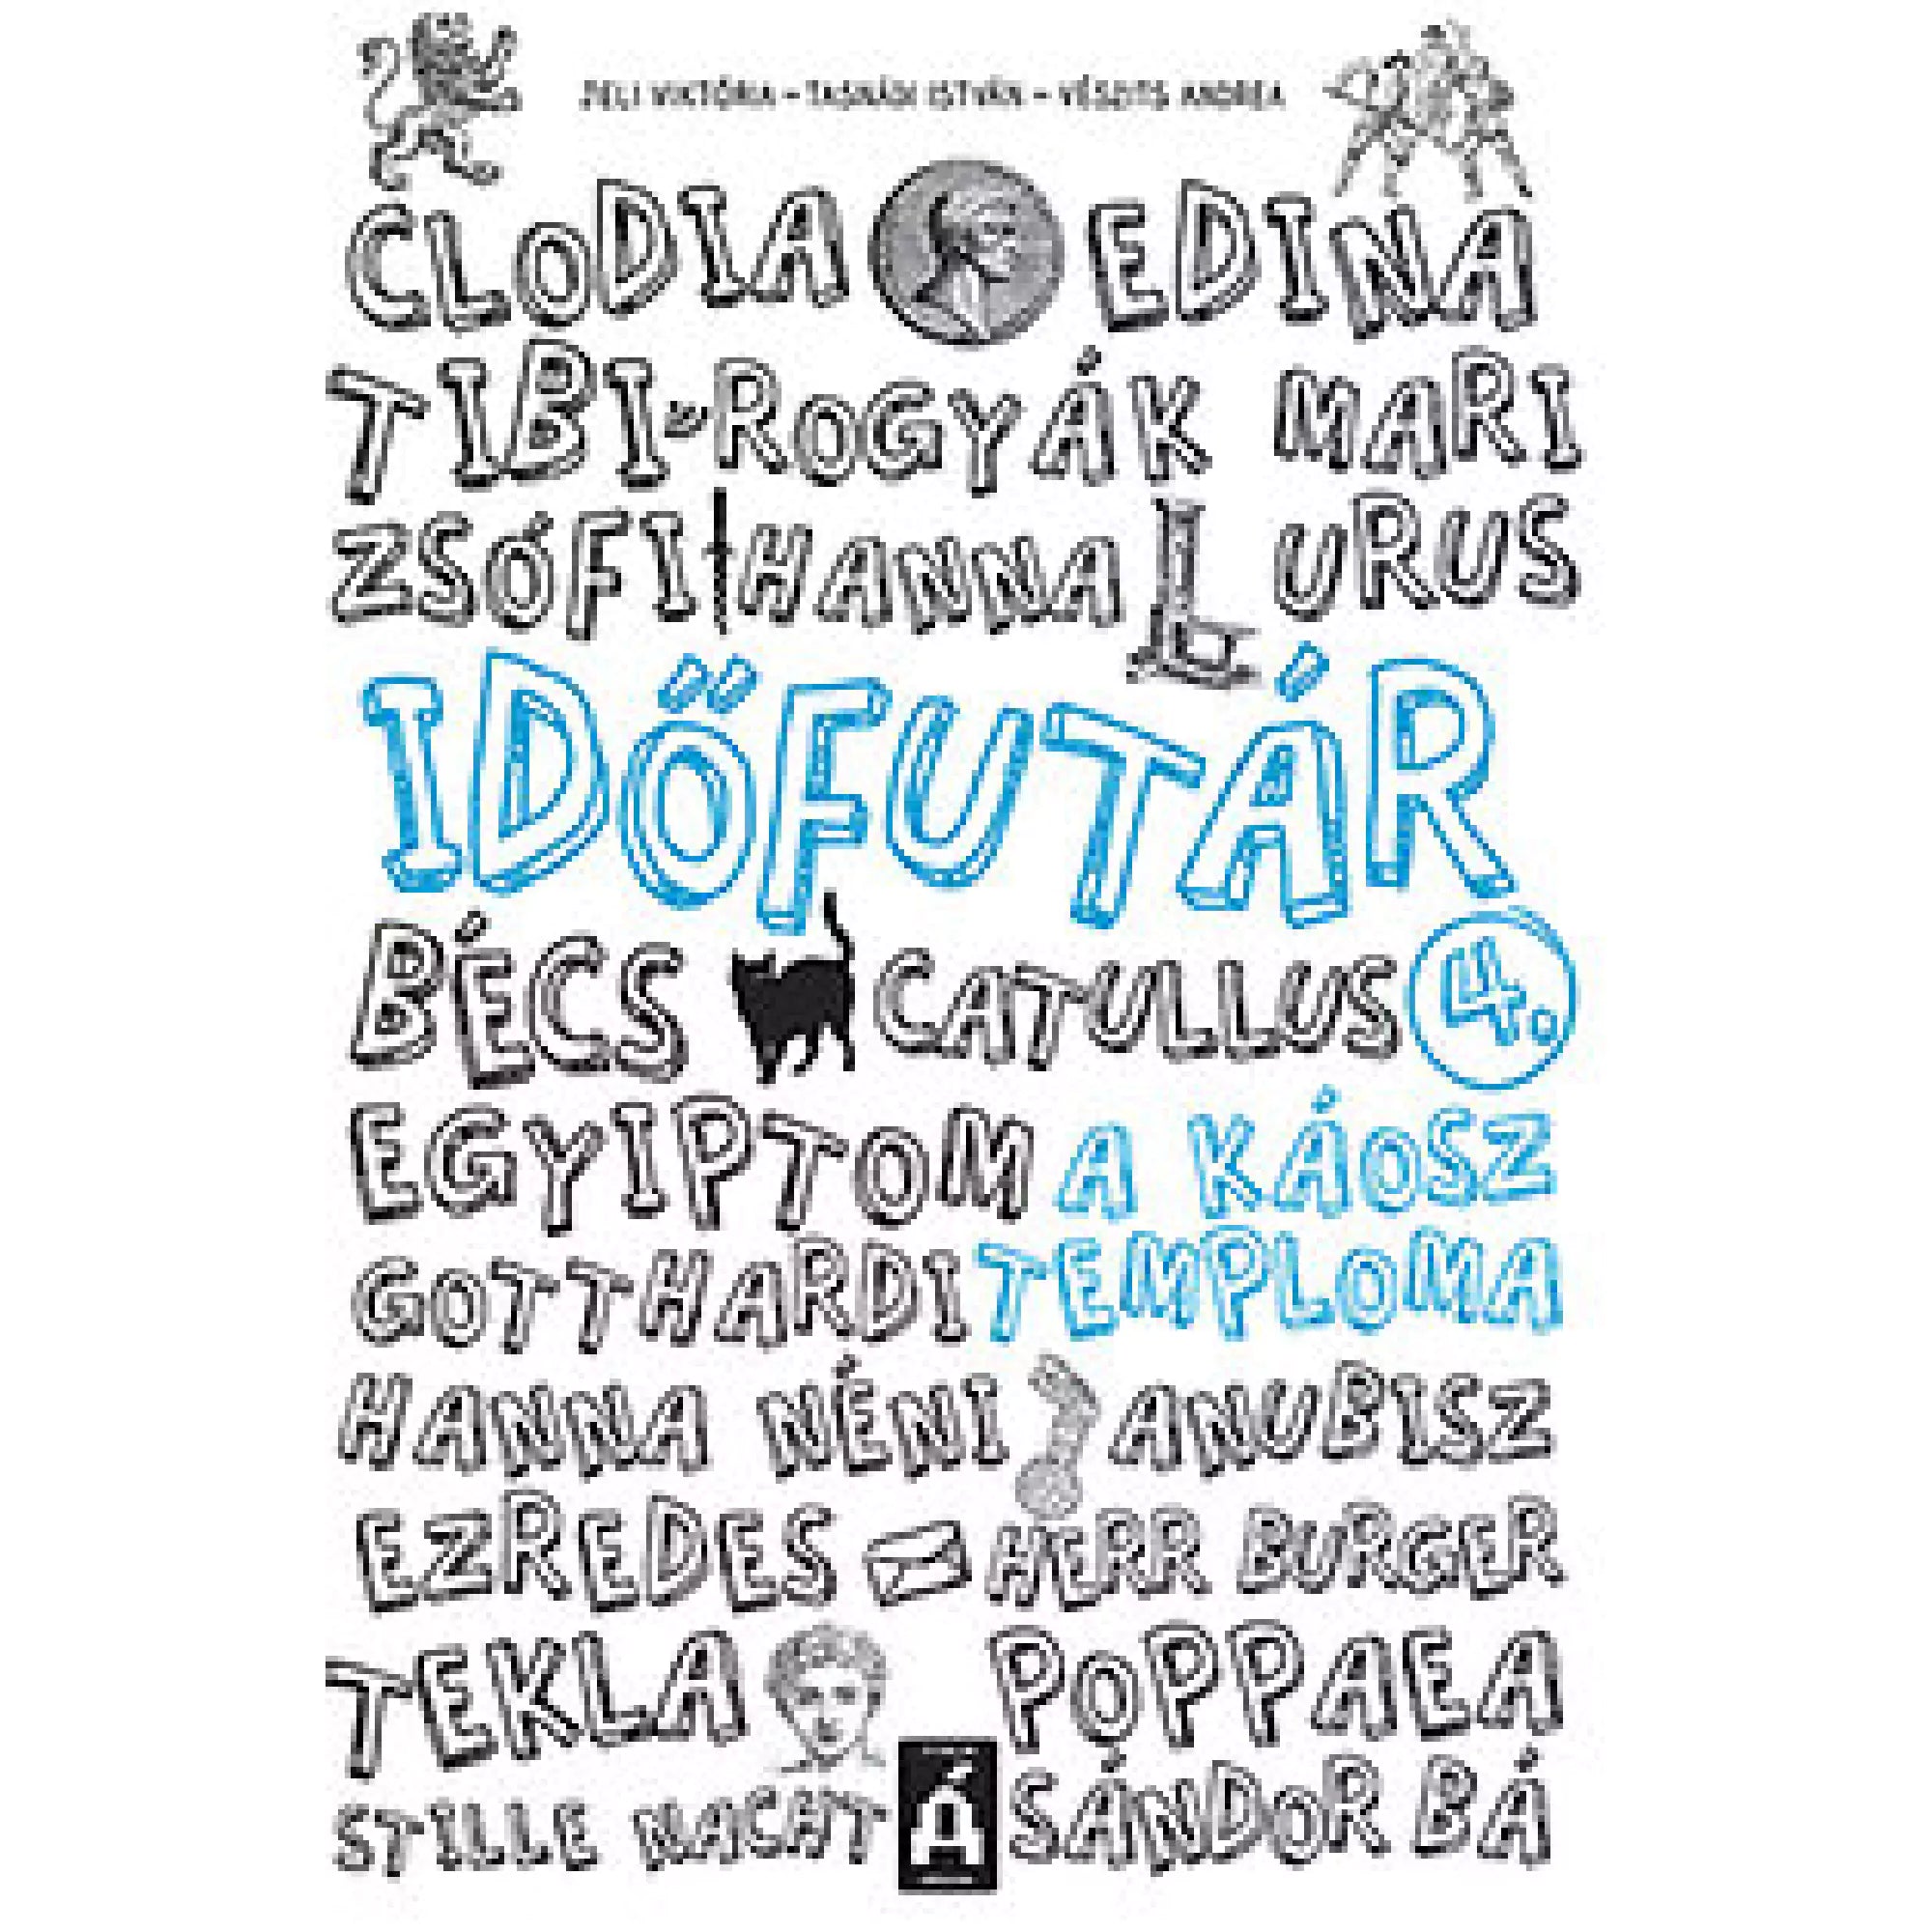 ZELI VIKTÓRIA – TASNÁDI ISTVÁN – VÉSZITS ANDREA
CLODIA EDINA
TIBI ROGYÁK MARI
ZSÓFI HANNA URUS
IDŐFUTÁR
BÉCS CATULLUS 4.
EGYIPTOM A KÁOSZ
GOTTHARDI TEMPLOMA
HANNA NÉNI ANUBISZ
EZREDES HERR BURGER
TEKLA POPPAEA
STILLE NACHT SÁNDOR BÁ